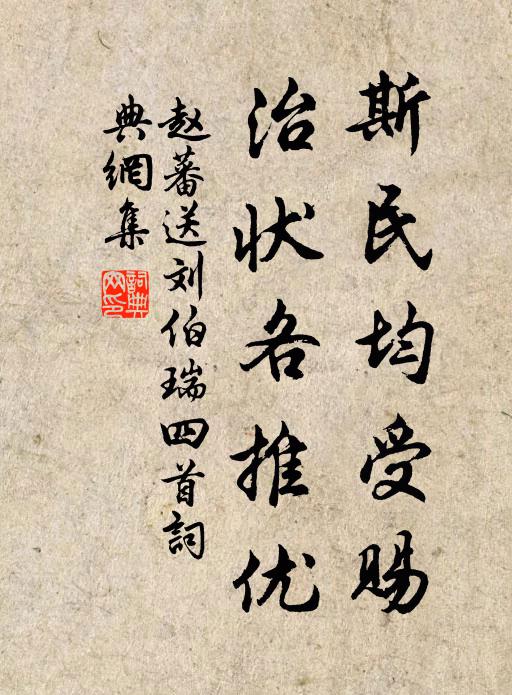 斯民均受赐
治状各推优
赵蕃送刘伯瑞四首詞
典網集
詞典网印